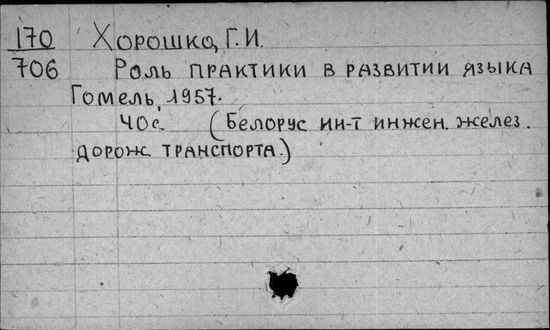 170 Хорошко, Г.И.
706 Роль практики в развитии языка
Гомель, 1957.
40с. (Белорус ин-т инжен. желез.
дорож. транспорта.)